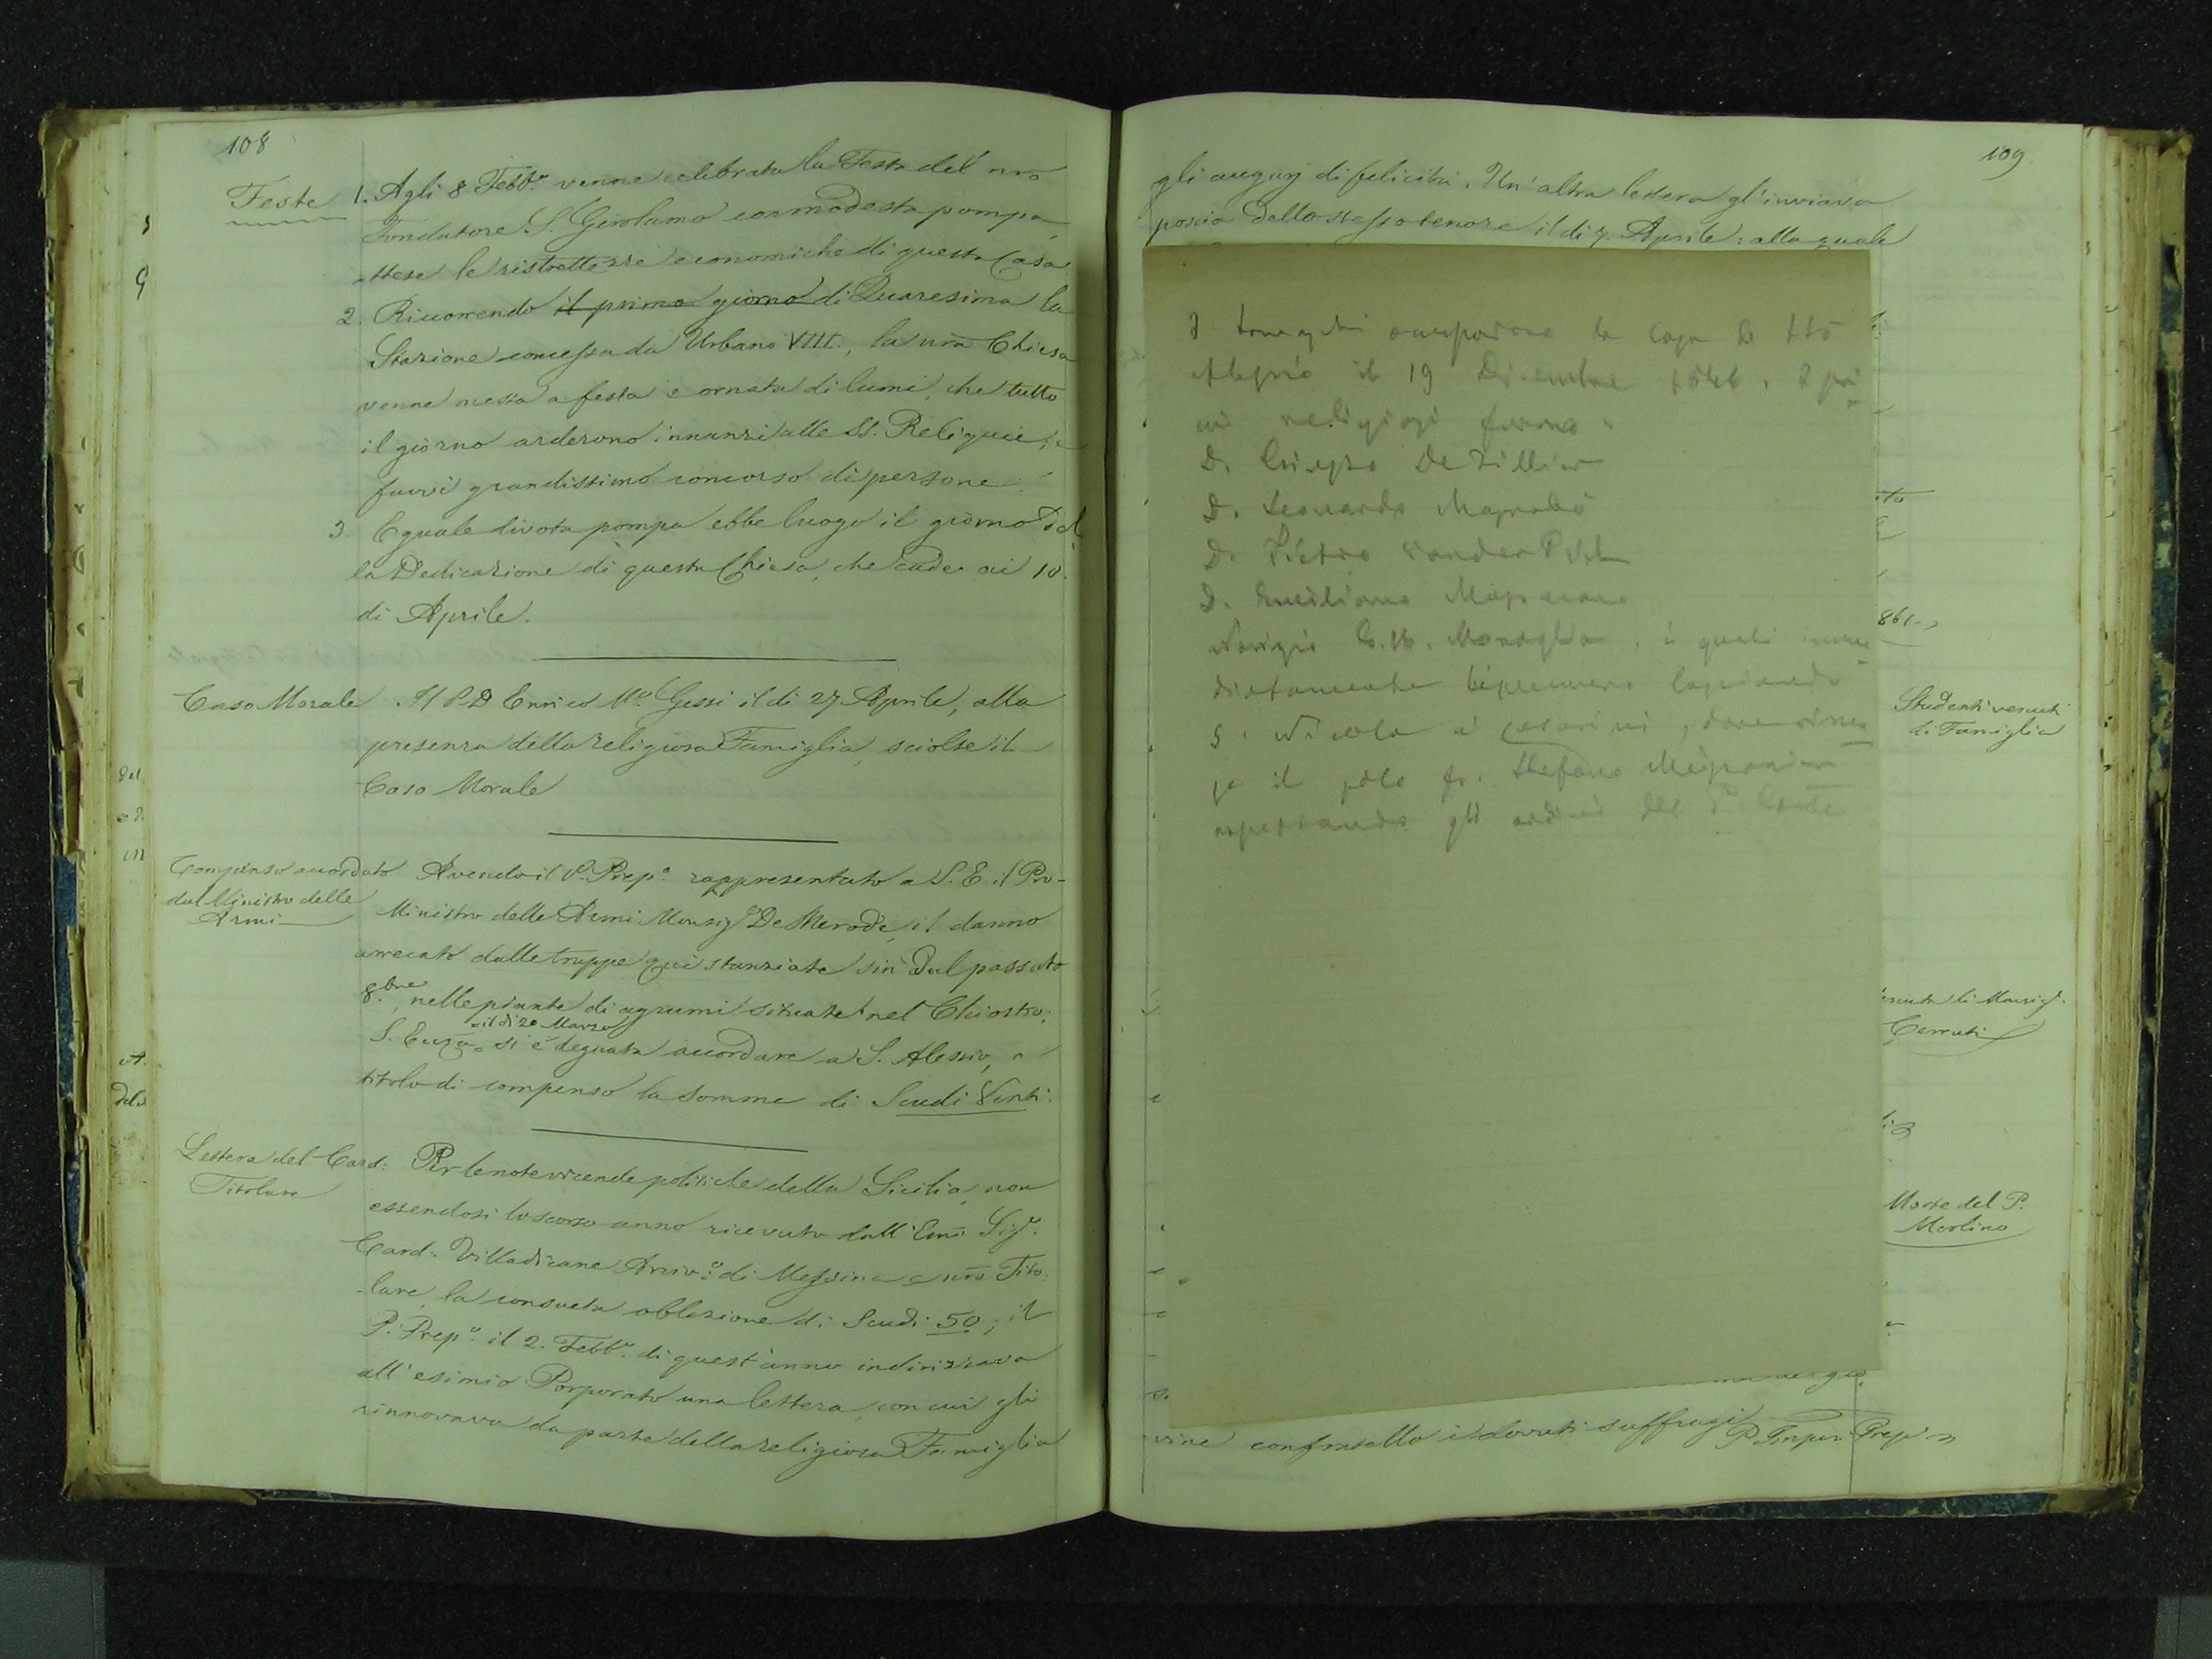 108
Feste
1. Agli 8 Febb.º venne celebrata la Festa del nrō
Fondatore S. Girolamo con modesta pompa,
attese le ristrettezze economiche di questa Casa.
2. Ricorrendo il primo giorno di Quaresima la
Stazione concessa da Urbano VIII., la nrā Chiesa
venne messa a festa e ornata di lumi, che tutto
il giorno arderono innanzi alle SS. Reliquie, e
fuvvi grandissimo concorso di persone.
3. Eguale divota pompa ebbe luogo il giorno del
la Dedicazione di questa Chiesa, che cade ai 10.
di Aprile.
Caso Morale
Il P. D. Enrico M.ª Gessi il di 27 Aprile, alla
presenza della religiosa Famiglia, sciolse il
Caso Morale
Compenso accordato
dal Ministro delle
Armi
Avendo il P. Prep.º rappresentato a S. E. il Pro-
Ministro delle Armi Monsig.r De Merode, il danno
arrecato dalle truppe qui stanziate sin dal passato
8.bre, nelle piante di agrumi situate nel Chiostro;
il di 20 Marzo
S. Ecczā si è degnata accordare a S. Alessio, a
titolo di compenso la somma di Scudi Venti.
Lettera del Card:
Titolare
Per le note vicende politiche della Sicilia, non
essendosi lo scorso anno ricevuto dall'Emō Sig.r
Card. Villadicane Arciv.º di Messina e nrō Tito-
lare, la consueta oblazione di Scudi 50; il
P. Prep.º il 2. Febb.º di quest'anno indirizzava
all'esimio Porporato una lettera, con cui gli
rinnovava da parte della religiosa Famiglia
109
gli augurj di felicità. Un'altra lettera gl'inviava
poscia dello stesso tenore il di 7. Aprile: alla quale
occuparono la casa di
Alessio il 19 Dicembre 1846. I pri
mi religiosi furono
D.
D. Leonardo
D. Pietro
D. Emiliano
, i quali imme
diatamente lasciando
S. Nicola a Cesarini, dove rima
se il solo fr. Stefano
aspettando gli ordini del
861
Studenti venuti
di Famiglia
di Monsig.r
Cerruti
Morte del P.
Merlino
confratello i dovuti suffragi
Prep.º